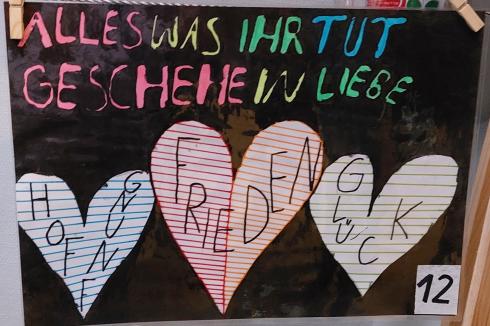 ALLES WAS IHR TUT
GESCHEHE IN LIEBE
HOFFNUNG
FRIEDEN
GLÜCK
12